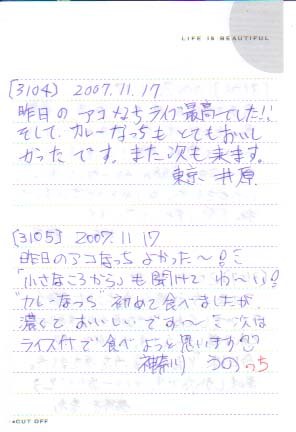 LIFE IS BEAUTIFUL
[3104] 2007.11.17
昨日のアコなちライブ最高でした!!
そして、カレーなっちもとてもおいし
かったです。また次も来ます。
東京 井原
[3105] 2007.11.17
昨日のアコなっちよかった〜!ミ
「小さなころから」も聞けてわ〜い!
"カレーなっち"初めて食べましたが
濃くておいしいです〜ミ次は
ライス付で食べようと思います??
神奈川 うのっち
✶CUT OFF